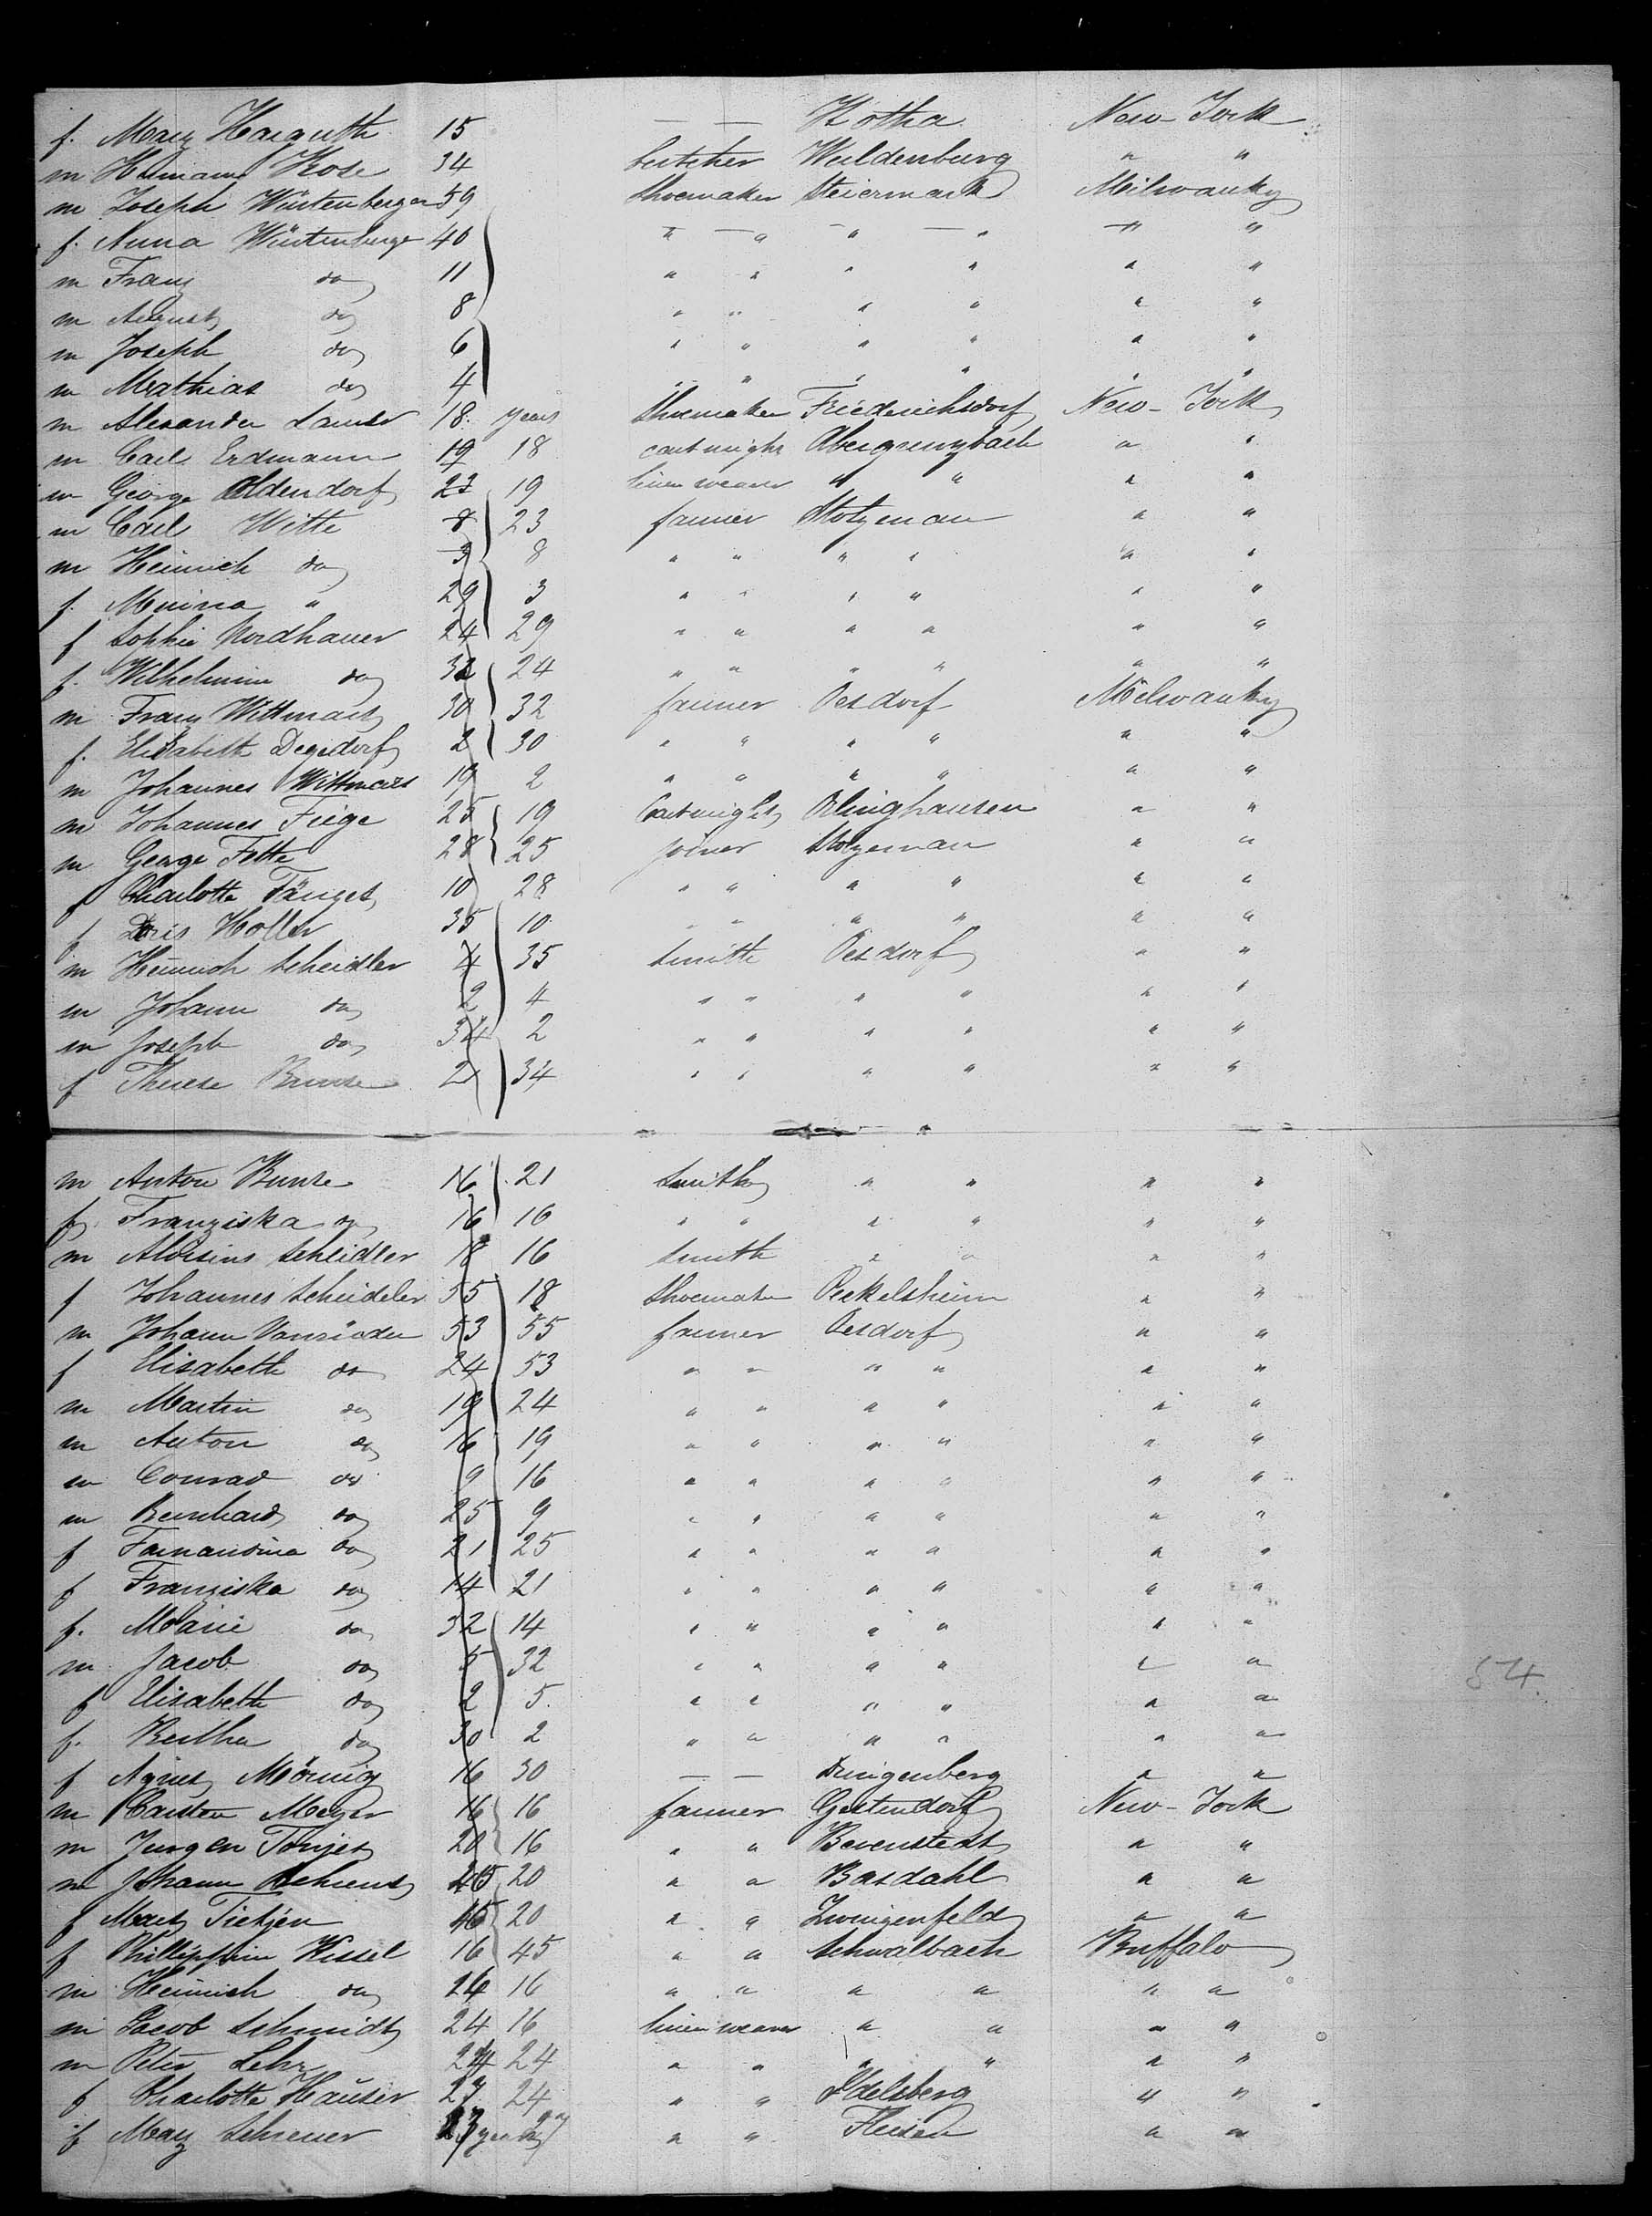 f. Mary Haiguth 15 — — Hotha New-York
m Hermann Kose 34 butcher Waldenburg " "
m Joseph Würtenberger 59 Shoemaker Steiermark Milwauky
f. Anna Würtenberger 40 " " " " " "
m Franz do 11 " " " " " "
m August do 8 " " " " " "
m Joseph do 6 " " " " " "
m Mathias do 4 " " " " " "
m Alexander 18. years Shoemaker Friedrichsdorf New-York
m Carl Erdmann 19 18 cartwright Obergrenzbach " "
m George Oldendorf 23 19 linen weaver " " " "
m Carl Witte 8 23 farmer Stolzenau " "
m Heinrich do 3 8 " " " " " "
f. Minna " 29 3 " " " " " "
f Sophie Nordhauer 24 29 " " " " " "
f. Wilhelmine do 32 24 " " " " " "
m Franz Wittmars 30 32 farmer Oesdorf Milwauky
f. Elisabeth Degedorf 2 30 " " " " " "
m Johannes Wittmars 19 2 " " " " " "
m Johannes Fiege 25 19 Cartwright Orlinghausen " "
m George Fette 28 25 joiner Stolzenau " "
f Charlotte Tänges 10 28 " " " " " "
f Doris Holler 35 10 " " " " " "
m Heinrich Scheidler 4 35 Smith Oesdorf " "
m Johann do 2 4 " " " " " "
m Joseph do 34 2 " " " " " "
f Therese Bunse 21 34 " " " " " "
m Anton Bunse 16 21 Smith " " " "
f. Franziska do 16 16 " " " " " "
m Aloisius Scheidler 18 16 Smith " " " "
f Johannes Scheideler 55 18 Shoemaker Peckelsheim " "
m Johann 53 55 farmer Oesdorf " "
f Elisabeth do 24 53 " " " " " "
m Martin do 19 24 " " " " " "
m Anton do 16 19 " " " " " "
m Conrad do 9 16 " " " " " "
m Bernhard do 25 9 " " " " " "
f Farnandina do 21 25 " " " " " "
f Franziska do 14 21 " " " " " "
f. Marie do 32 14 " " " " " "
m Jacob do 5 32 " " " " " "
f Elisabeth do 2 5. " " " " " "
f. Bertha do 30 2 " " " " " "
f Agnes Mönnig 16 30 — — Dringenberg " "
m Carsten Meyer 16 16 farmer Geestendorf New-York
m Jurgen Tönjes 20 16 " " Bevenstedt " "
m Johann Behrens 20 " " Basdahl " "
f Mary Tietjen 45 20 " " " "
f Phillippine Kissel 16 45 " " Schwalbach Buffalo
m Heinrich do 16 " " " " " "
m Jacob Schmidt 24 16 linen weaver " " " "
m Peter Lehr 24 24 " " " " " "
f Charlotte Häuser 27 24 " " Idelsberg " "
f Mary Schreuer 27 " " " "
54.